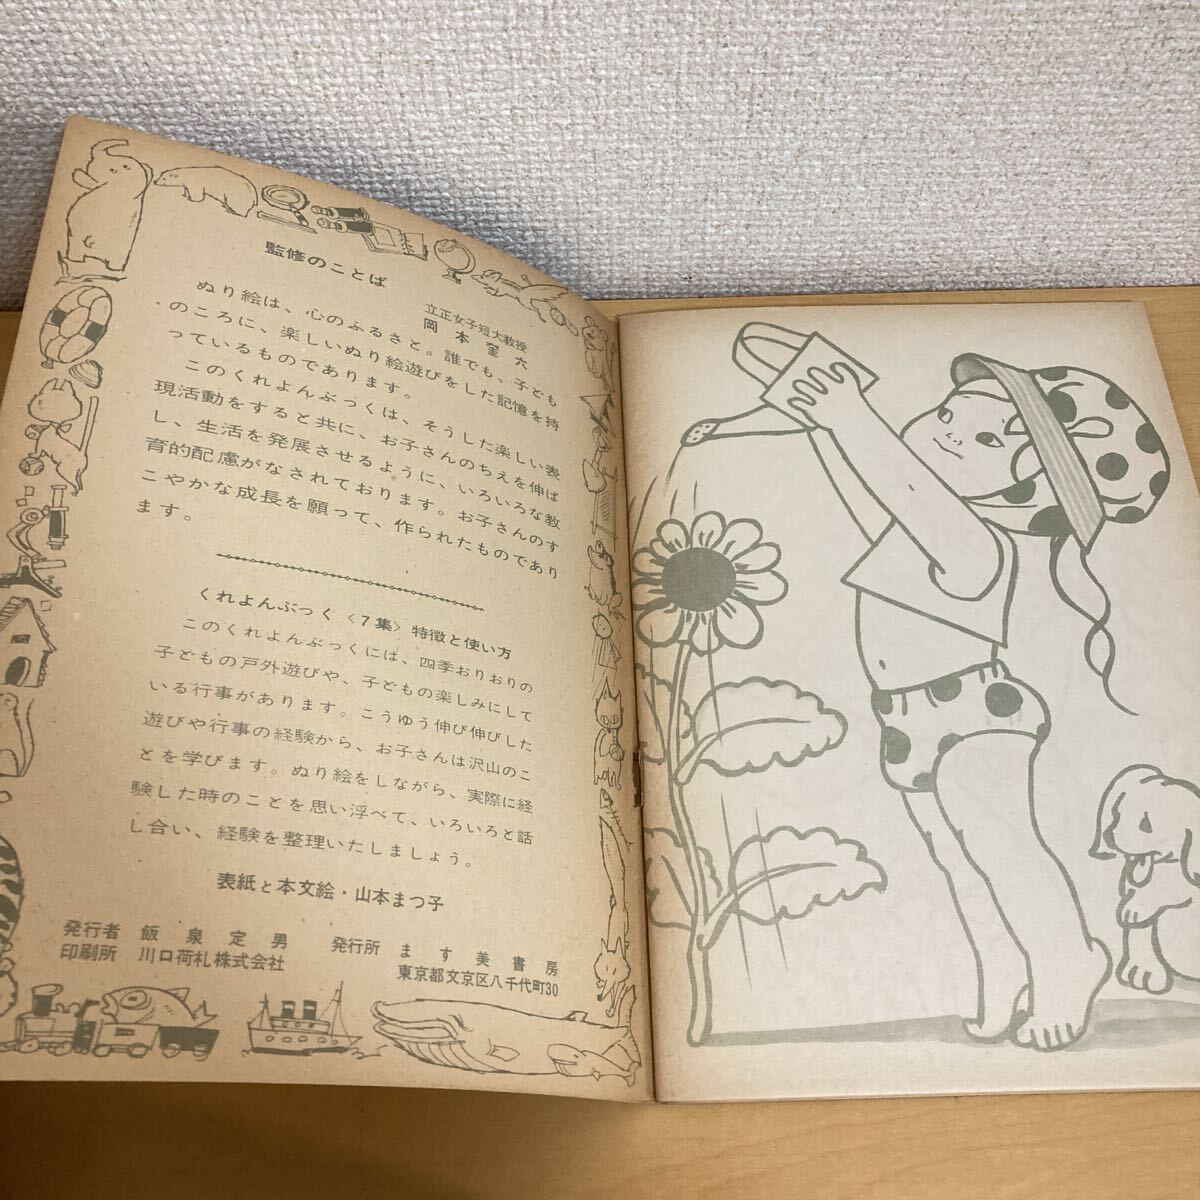 監修のことば
立正女子短大教授
岡本奎六
ぬり絵は、心のふるさと。誰でも、子ども
のころに、楽しいぬり絵遊びをした記憶を持
っているものであります。
このくれよんぶっくは、そうした楽しい表
現活動をすると共に、お子さんのちえを伸ば
し、生活を発展させるように、いろいろな教
育的配慮がなされております。お子さんのす
こやかな成長を願って、作られたものであり
ます。
くれよんぶっく〈7集〉特徴と使い方
このくれよんぶっくには、四季おりおりの
子どもの戸外遊びや、子どもの楽しみにして
いる行事があります。こうゆう伸び伸びした
遊びや行事の経験から、お子さんは沢山のこ
とを学びます。ぬり絵をしながら、実際に経
験した時のことを思い浮べて、いろいろと話
し合い、経験を整理いたしましょう。
表紙と本文絵・山本まつ子
発行者 飯泉定男 発行所 ます美書房
印刷所 川口荷札株式会社 東京都文京区八千代町30